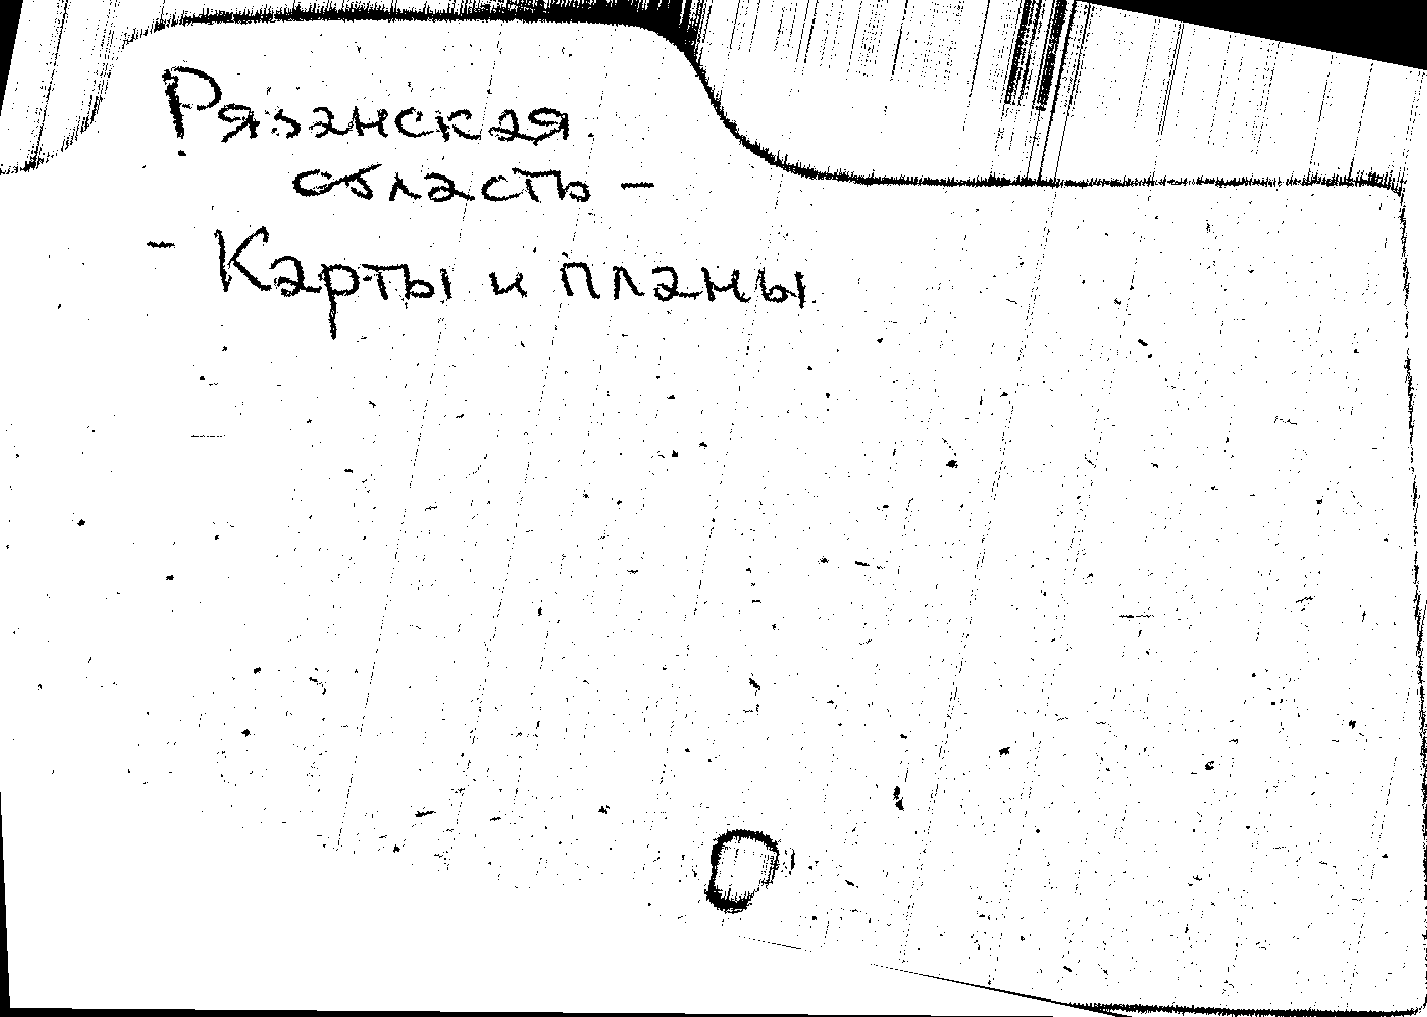 Рязанская
область –
– Карты и планы